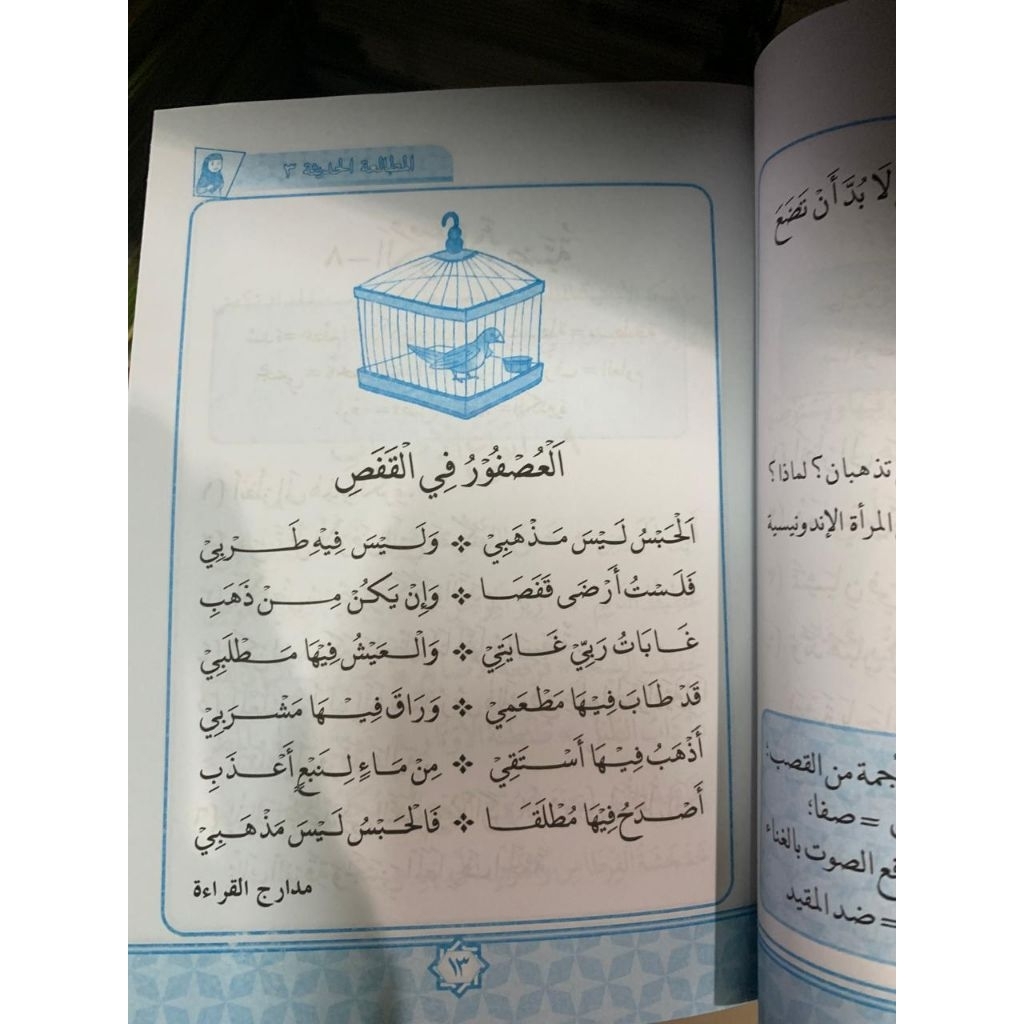 المطالعة الحديثة ٣
اَلْعُصْفُوْرُ فِي الْقَفَصِ
اَلْحَبْسُ لَيْسَ مَذْهَبِيْ ❖ وَلَيْسَ فِيْهِ طَرَبِيْ
فَلَسْتُ أَرْضَى قَفَصَا ❖ وَإِنْ يَكُنْ مِنْ ذَهَبِ
غَابَاتُ رَبِّيْ غَايَتِيْ ❖ وَالْعَيْشُ فِيْهَا مَطْلَبِيْ
قَدْ طَابَ فِيْهَا مَطْعَمِيْ ❖ وَرَاقَ فِيْهَا مَشْرَبِيْ
أَذْهَبُ فِيْهَا أَسْتَقِيْ ❖ مِنْ مَاءٍ لِنَبْعٍ أَعْذَبِ
أَصْدَحُ فِيْهَا مُطْلَقَا ❖ فَالْحَبْسُ لَيْسَ مَذْهَبِيْ
مدارج القراءة
١٣
لَا بُدَّ أَنْ تَضَعَ
تذهبان؟ لماذا؟
المرأة الإندونيسية
من القصب؛
= صفا؛
الصوت بالغناء
= ضد المقيد